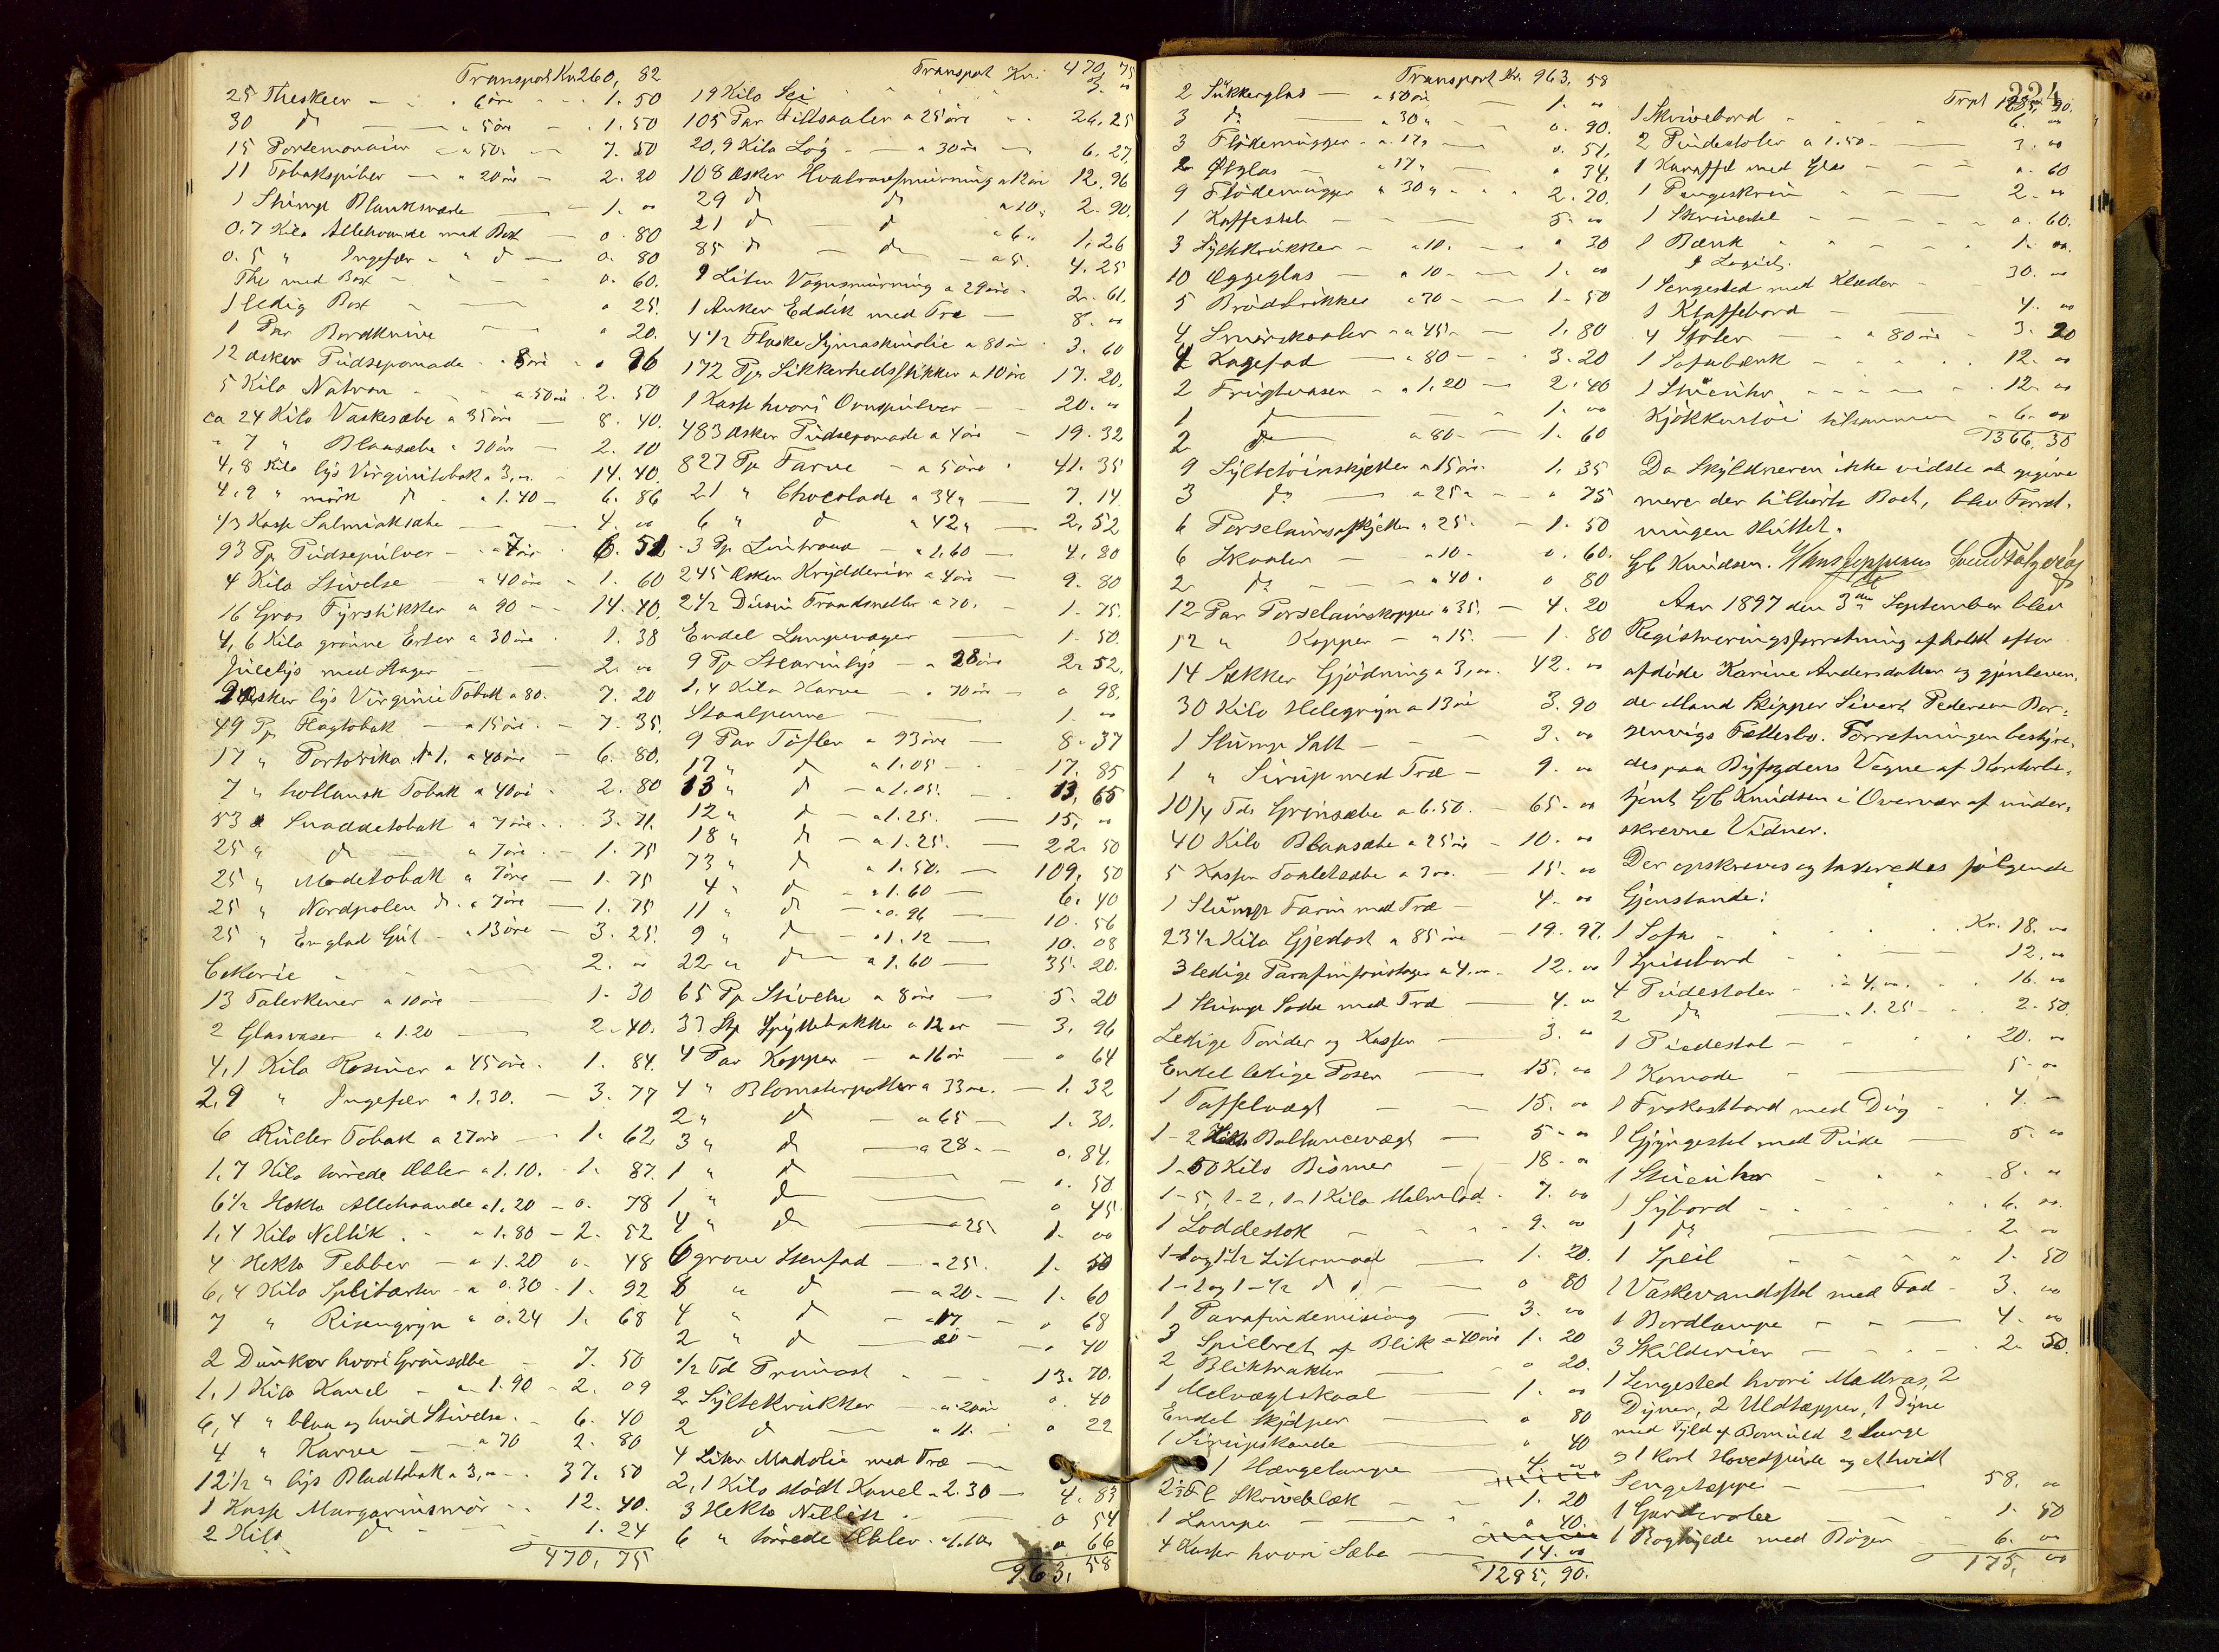 Transport Kr. 260, 82
25 Theskeer - - " 6 öre - - 1. 50
30 do — " 5 öre - 1. 50
15 Portemonaier - a 50 " - 7. 50
11 Tobakspiber — a 20 öre - 2. 20
1 Slump Blanksværte — 1. "
0.7 Kilo Allehaande med Box — 0. 80
0.5 " Ingefær - " do — 0. 80
The med Box - - 0. 60.
1 ledig Box - " 25.
1 Par Bordknive — " 20.
12 Æsker Pudsepomade a 8 öre " 96
5 Kilo Natron - a 50 öre 2. 50
ca 24 Kilo Vaskesæbe a 35 öre — 8. 40.
" 7 " Blaasæbe a 30 öre — 2. 10
4,8 Kilo lys Virginitobak a 3,00 - 14. 40.
4,9 " mörk do a 1.40 - 6. 86
1/3 Kasse Salmiaksæbe — 4. 00
93 Pk Pudsepulver - a 7 öre 6. 51
4 Kilo Stivelse — a 40 öre 1. 60
16 Gros Fyrstikker a 90 - 14. 40.
4,6 Kilo grönne Erter a 30 öre 1. 38
Julelys med Stager — 2. 00
9 Æsker lys Virginie Tobak a 80. 7. 20
49 Pk Flagtobak — a 15 öre - 7. 35.
17 " Portorika No 1. a 40 öre - 6. 80.
7 " hollansk Tobak a 40 öre 2. 80
53 " Snaddetobak a 7 öre 3. 71.
25 " do — a 7 öre 1. 75
25 " Modetobak a 7 öre 1. 75
25 " Nordpolen do a 7 öre 1. 75
25 " En glad Gut - a 13 öre 3. 25.
Cekorie 2. 00
13 Talerkener a 10 öre 1. 30
2 Glasvaser a 1.20 — 2. 40.
4,1 Kilo Rosiner a 45 öre. 1. 84.
2,9 " Ingefær a 1.30. - 3. 77
6 Ruller Tobak a 27 öre - 1. 62.
1,7 Kilo törrede Æbler a 1.10. 1. 87.
6 1/2 Hekto Allehaande a 1.20 - 0. 78
1,4 Kilo Nellik. - a 1.80 - 2. 52
4 Hekto Pebber - a 1.20 0. 48
6,4 Kilo Splitærter - a 0.30 - 1. 92
7 " Risengryn a 0.24 1. 68
2 Dunker hvori Grönsæbe - 7. 50
1,1 Kilo Kanel - a 1.90 - 2. 09
6,4 " blaa og hvid Stivelse. - 6. 40
4 " Karve — a 70 2. 80
12 1/2 " lys Bladtobak a 3,00 - 37. 50
1 Kasse Margarinsmör - 12. 40.
2 Kilo do - 1. 24
470, 75
Transport Kr. 470, 75
19 Kilo Sei 3. 00
105 Par Filtsaaler a 25 öre 26. 25
20,9 Kilo Log - a 30 öre 6. 27.
108 Æsker Hvalraafsmurning a 12 öre 12. 96
29 do do a 10 " 2. 90.
21 do do a 6 " 1. 26
85 do - do a 5. 4. 25
9 Liter Vognsmurning a 29 öre. 2. 61.
1 Anker Eddik med Træ - 8. 00
4 1/2 Flaske Symaskinolie a 80 öre 3. 60
172 Pk Sikkerhedsstikker a 10 öre 17. 20.
1 Kasse hvori Ovnspulver - 20. 00
483 Æsker Pudsepomade a 4 öre - 19. 32
827 Pk Farve - a 5 öre 41. 35
21 " Chocolade a 34 " — 7. 14
6 " do a 42 " — 2, 52
3 Pk Lintraad - a 1,60 — 4. 80
245 Æsker Krydderier a 4 öre - 9. 80
2 1/2 Dusin Traadsneller a 70. - 1. 75.
Endel Lampevæger — 1. 50.
9 Pk Stearinlys - a 28 öre 2. 52.
1,4 Kilo Karve - a 70 öre - 0 98.
Staalpenne — 1. 00
9 Par Töfler a 93 öre - 8. 37
17 " do a 1.05 - 17. 85
13 " do - a 1.05. 13, 65
12 " do - a 1.25. 15, 00
18 " do - a 1.25. 22. 50
73 " do a 1.50. 109, 50
4 " do a 1.60 — 6. 40
11 " do - a 0.96 — 10. 56
9 " do - a 1.12 — 10. 08
22 " do - a 1.60 — 35. 20.
65 Pk Stivelse a 8 öre — 5. 20
33 Stk Spyttebakker a 12 öre — 3. 96
4 Par Kopper — a 16 öre 0 64
4 " Blomsterpotter a 33 öre. — 1. 32
2 " do - a 65 — 1. 30.
3 " do — a 28 - 0. 84.
1 " do — 0. 50
1 " do — 0 45
4 " do — a 25 1. 00
6 grove Stenfad — a 25. 1. 50
8 " do — a 20 - 1. 60
4 " do - a 17 - 0 68
2 " do a 20 - 0 40
1/2 Td Primost 13. 70.
2 Syltekrukker — a 20 öre 0. 40
2 do — a 11. - 0 22
4 Liter Madolie med Træ —
2,1 Kilo stödt Kanel a 2.30 — 4. 83
3 Hekto Nellik - 0 54
6 " törrede Æbler a 1.10. 0 66
963, 58
Transport Kr. 963, 58
2 Sukkerglas — a 50 öre — 1. 00
3 do — a 30 " 0. 90.
3 Flödemugger - a 17 " 0. 51.
2 Ölglas — a 17 " 0 34.
9 Flödemugger a 30 " 2. 70.
1 Kaffestel - - 5. 00
3 Syltekrukker - a 10. 0 30
10 Æggeglas — a 10 - 1. 00
5 Brödbrikker a 30 - 1. 50
4 Smörskaaler - a 45 - 1. 80
4 Kagefad — a 80 - 3. 20
2 Frugtvaser - a 1.20 - 2. 40
1 do — 1. 00
2 do a 80 - 1. 60
9 Syltetöinskjeller a 15 öre 1. 35
3 do — a 25 - 0 75
6 Porselainsskjeller a 25. - 1. 50
6 Skaaler — a 10 - 0. 60.
2 do — a 40. 0 80
12 Par Porselainskopper a 35. - 4. 20
12 " Kopper - a 15. - 1. 80
14 Sækker Gjödning a 3,00. 42. 00
30 Kilo Helegryn a 13 öre 3. 90
1 Slump Salt - - 3. 00
1 " Sirup med Træ - 9. 00
10/4 Tdr Grönsæbe a 6.50. 65. 00
40 Kilo Blaasæbe a 25 öre - 10. 00
5 Kasser Toaletsæbe a 3 00. - 15. 00
1 Slump Farin med Træ - 4. 00
23 1/2 Kilo Gjedost a 85 öre - 19. 97.
3 ledige Parafinfoustager a 4.00 12. 00
1 Slump Soda med Træ — 4. 00
Ledige Tönder og Kasser — 3. 00
Endel ledige Poser — 15. 00
1 Taffelvægt — 15. 00
1 - 2 Ballancevægt — 5. 00
1 - 50 Kilo Bismer — 18. 00
1 - 5, 1 - 2, 1 - 1 Kilo Malmlod. 7. 00
1 Loddestok 9. 00
1 - 1 og 1 1/2 Litermaal — 1. 20.
1 - 1 og 1 - 1/2 do — 0 80
1 Parafindemising — 3. 00
3 Spillbret af Blik a 40 öre 1. 20
2 Bliktrakter — 0 20.
1 Melvægtskaal — 1. 00
Endel Skjölper — 0 80
1 Sirupskande — 0 40
1 Hængelampe — 4. 00
2 1/2 Fl Skriveblæk - - 1. 20
1 Lampe — 0 40.
4 Kasser hvori Sæbe — 14. 00
1285, 90.
224
Trpt 1285, 90.
1 Skrivebord 6. 00
2 Pindestoler a 1.50 - 3. 00
1 Karaffel med Glas 0. 60
1 Pengeskrin - 2. 00
1 Skrivestel 0. 60.
1 Bænk 1. 00.
I Logiet.
1 Sengested med Klæder - 30. 00
1 Klaffebord - 4. 00
4 Stoler - a 80 öre - 3. 20
1 Sofabænk - 12. 00
1 Stueuhr - 12. 00
Kjökkentöi tilsammen 6. 00
1366, 30
Da Skyldneren ikke vidste at opgive
mere der tilhörte Boet, blev Forret-
ningen sluttet.
GC Knudsen. Hans Jeppesen
Aar 1897 den 3die September blev
Registreringsforretning afholdt efter
afdöde Karine Andersdatter og gjenleven-
de Mand Skipper Sivert Pedersen Bor-
genvigs Fællesbo. Forretningen bestyre-
des paa Byfogdens Vegne af Kontorbe-
tjent GC Knudsen i Overvær af under-
skrevne Vidner.
Der opskreves og taxeredes fölgende
Gjenstande:
1 Sofa Kr. 18. 00
1 Spisebord 12. 00
4 Pudestoler - a 4,00 16. 00
2 do — a 1.25 2. 50.
1 Piedestal - 20. 00
1 Komode — 5. 00
1 Frokostbord med Dug - 4. -
1 Gyngestol med Pude 5. 00
1 Stueuhr 8. 00
1 Sybord 6. 00.
1 do — 2. 00
1 Speil - 1. 50
1 Vaskevandsstel med Fad - 3. 00
1 Bordlampe - 4. 00
3 Skilderier — 2. 50.
1 Sengested hvori Madras, 2
Dyner, 2 Uldtæpper, 1 Dyne
med Fyld af Bomuld 2 lange
og 1 kort Hovedpude og et hvidt
Sengetæppe - 58. 00
1 Garderobe — 1. 50
1 Boghylde med Böger 6. 00
175, 00